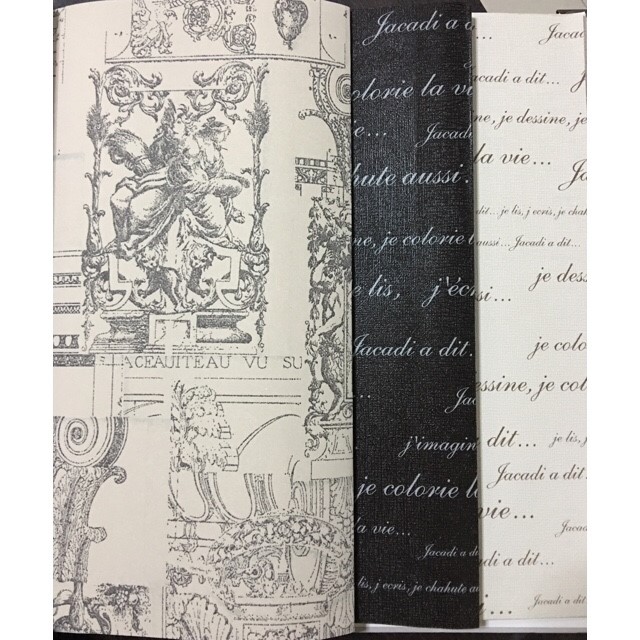 ACEAUITEAU VU SU
Jacadi a di
olorie la vi
ie...
Jacadi
chahute aussi.
ne, je colorie l
e lis, j'écri
Jacadi a dit...
Jac
j'imagin
je colorie l
la vie...
Jacadi a di
lis, j ecris, je chahute au
...
Jacad
acadi a dit...
je dessine, je
la vie...
Ja
dit... je lis, j ecris, je chahute
aussi... Jacadi a dit...
je dess
si...
je colo
essine, je col
dit... je lis, j
Jacadi a dit...
vie...
Jaca
di a dit...
Jacadi a dit...